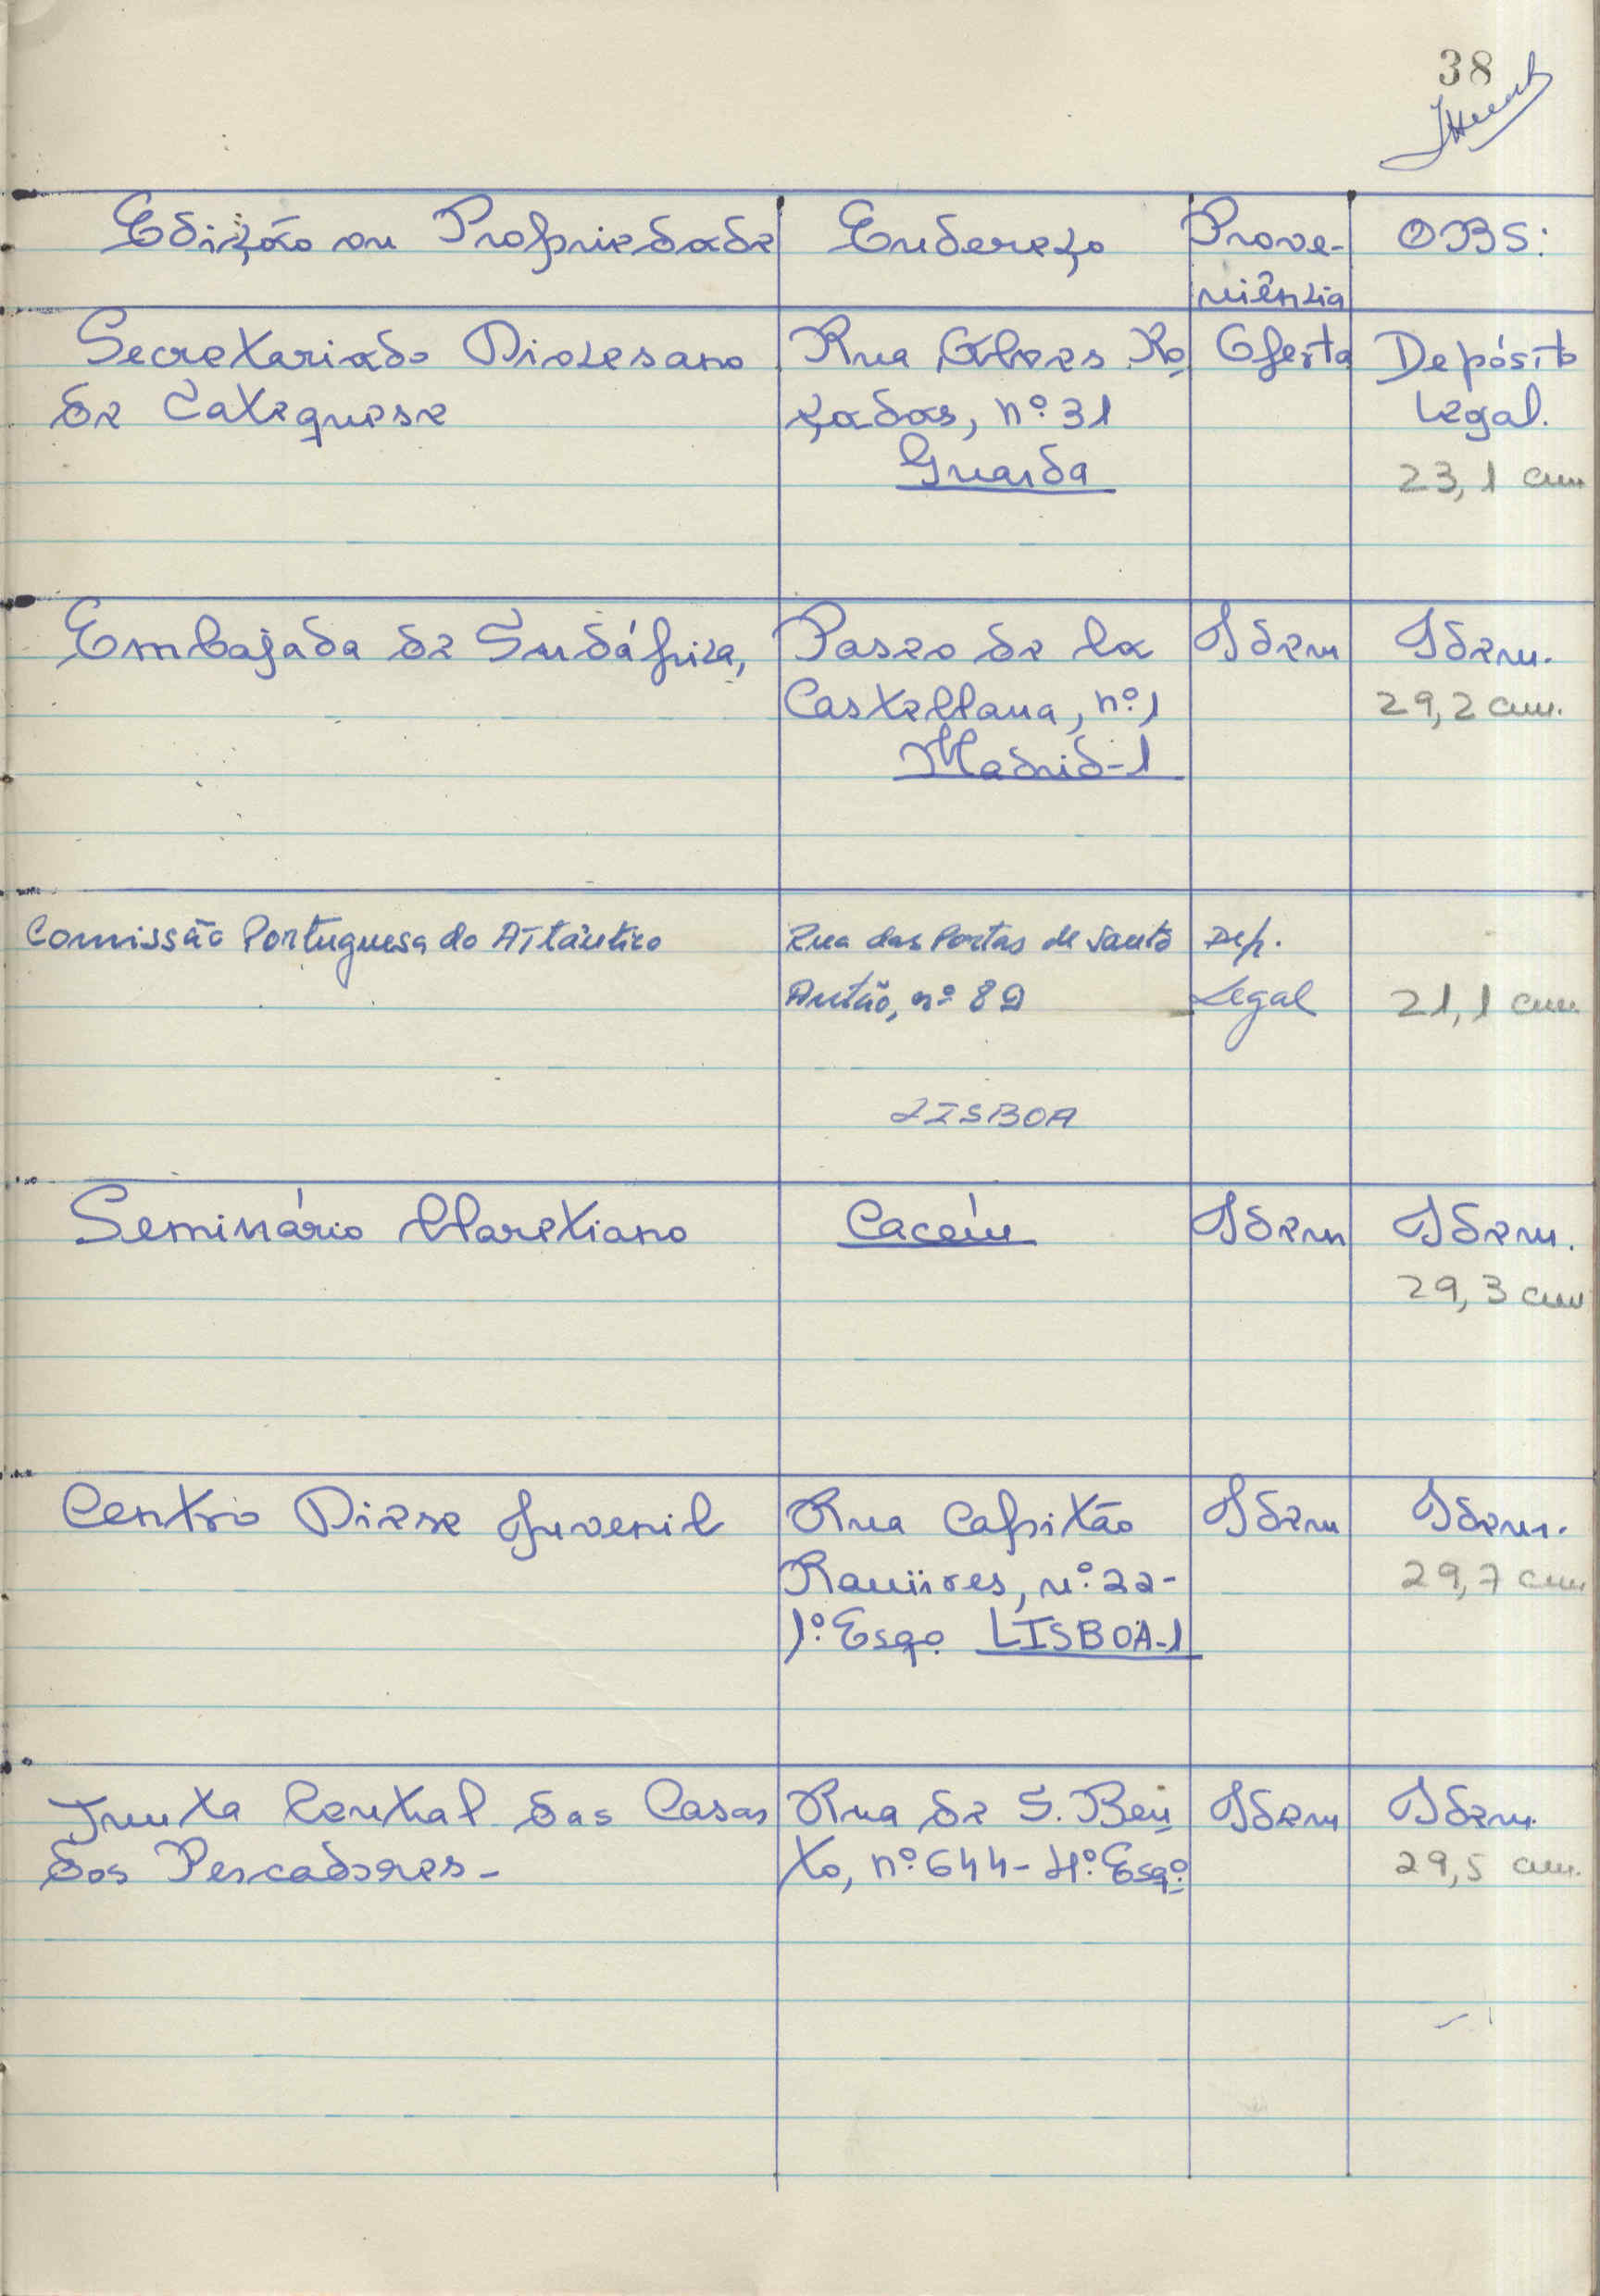 38
Edição ou Propriedade Endereço Prove- OBS:
niência
Secretariado Diocesano Rua Alves Ro Oferta Depósito
de Catequese çadas, nº 31 Legal.
Guarda 23,1 cm
Embajada de Sudáfrica, Paseo de la Idem Idem.
Castellana, nº 1 29,2 cm.
Madrid-1
Comissão Portuguesa do Atlântico Rua das Portas de Santo Dep.
Antão, nº 89 Legal 21,1 cm
LISBOA
Seminário Claretiano Cacém Idem Idem.
29,3 cm
Centro Diese Juvenil Rua Capitão Idem Idem.
Ramires, nº 22- 29,7 cm
1º Esqº LISBOA-1
Junta Central das Casas Rua de S. Ben Idem Idem.
dos Pescadores- to, nº 644-4º Esqº 29,5 cm.